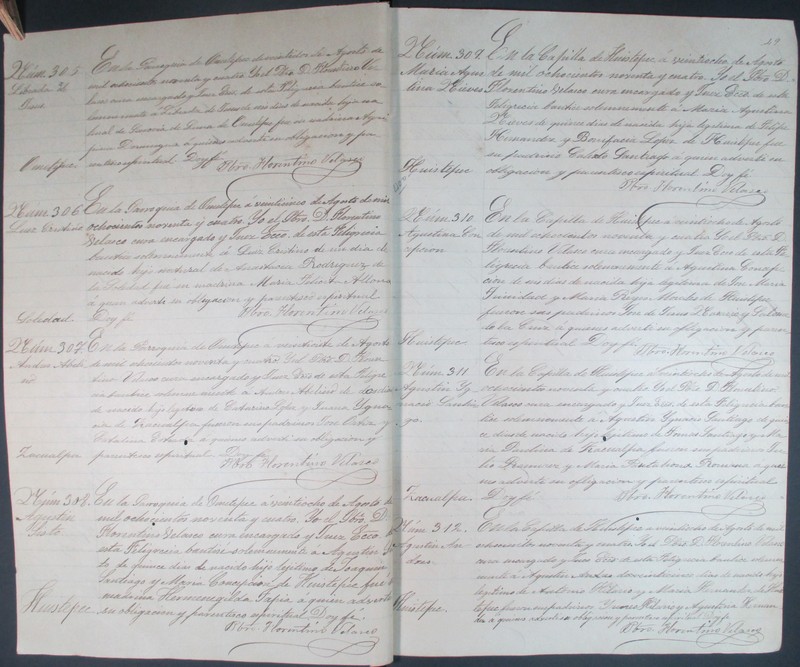 Núm. 305
Librada de
Omotepe.
En la Parroquia de Ometepec á veintiseis de Agosto de
mil ochocientos noventa y cuatro Yo el Pbro. D. Florentino Ve
lasco cura encargado y Juez Eco. de esta Feligresía bautice so
lemnemente á Librada de dos dias de nacida hija na
tural de de Ometepe fue su madrina
Dominguez á quien advertí su obligacion y pa
rentesco espiritual Doy fé.
Pbro. Florentino Velasco
Núm. 306
Luis Cristino
Soledad.
En la Parroquia de Ometepe á veintisiete de Agosto de mil
ochocientos noventa y cuatro. Yo el Pbro. D. Florentino
Velasco cura encargado y Juez Ecco. de esta Feligresía
bautice solemnemente á Luis Cristino de un dia de
nacido hijo natural de Anastacia Rodriguez de
la Soledad fue su madrina Maria
á quien advertí su obligacion y parentesco espiritual
Doy fé.
Pbro. Florentino Velasco
Núm. 307.
Andres Abeli
no
Zacualpa
En la Parroquia de Ometepe á veintisiete de Agosto
de mil ochocientos noventa y cuatro Yo el Pbro. D. Floren
tino Velasco cura encargado y Juez Eco. de esta Feligre
sia bautice solemnemente á Andres Abelino de
de nacido hijo legitimo de Catarino y
de Zacualpa fueron sus padrinos Jose Ortiz y
Catalina á quienes advertí su obligacion y
parentesco espiritual. Doy fé.
Pbro. Florentino Velasco
Núm. 308.
Agustin
Justo
Huistepec
En la Parroquia de Ometepe á veintiocho de Agosto de
mil ochocientos noventa y cuatro. Yo el Pbro. D.
Florentino Velasco cura encargado y Juez Ecco. de
esta Feligresia bautice solemnemente á Agustin Jus
to de quince dias de nacido hijo legitimo de Joaquin
Santiago y Maria Concepcion de Huistepec fue su
madrina Hermenegilda Tapia á quien advertí
su obligacion y parentesco espiritual Doy fé.
Pbro. Florentino Velasco
Núm. 309.
Maria Agus
tina Nieves
Huistepec
En la Capilla de Huistepec á veintiocho de Agosto
de mil ochocientos noventa y cuatro. Yo el Pbro. D.
Florentino Velasco cura encargado y Juez Eco. de esta
Feligresia bautice solemnemente á Maria Agustina
Nieves de quince dias de nacida hija legitima de Felipe
Hernandez y Bonifacia Lopez de Huistepec fue
su padrino Calisto Santiago á quien advertí su
obligacion y parentesco espiritual Doy fé
Pbro. Florentino Velasco
Núm. 310
Agustina Con
cepcion
Huistepec
En la Capilla de Huistepec á veintiocho de Agosto
de mil ochocientos noventa y cuatro Yo el Pbro. D.
Florentino Velasco cura encargado y Juez Eco de esta Fe
ligresia bautice solemnemente á Agustina Concep
cion de un dias de nacida hija legitima de Jose Maria
Trinidad y Maria de Huistepec
fueron sus padrinos Jose de
Cruz á quienes advertí su obligacion y paren
tesco espiritual Doy fé.
Pbro. Florentino Velasco
Núm. 311
Agustin Yg
nacio Santia
go.
Zacualpa.
En la Capilla de Huistepec á veintiocho de Agosto de mil
ochocientos noventa y cuatro Yo el Pbro. D. Florentino
Velasco cura encargado y Juez Eco. de esta Feligresia bau
tice solemnemente á Agustin Ygnacio Santiago de quin
ce dias de nacido hijo legitimo de Tomas Santiago y Ma
ria Paulina de Zacualpa fueron sus padrinos
y Maria á quie
nes advertí su obligacion y parentesco espiritual
Doy fé.
Pbro. Florentino Velasco
Núm. 312.
Agustin An
Huistepec.
En la Capilla de Huistepec á veintiocho de Agosto de mil
ochocientos noventa y cuatro Yo el Pbro. D. Florentino Velasco
cura encargado y Juez Eco. de esta Feligresia bautice solemne
mente á Agustin de veintiun dias de nacido hijo
legitimo de Antonio y Maria Fernanda de Huis
tepec fueron sus padrinos y Agustina
á quienes advertí su obligacion y parentesco espiritual Doy fé
Pbro. Florentino Velasco